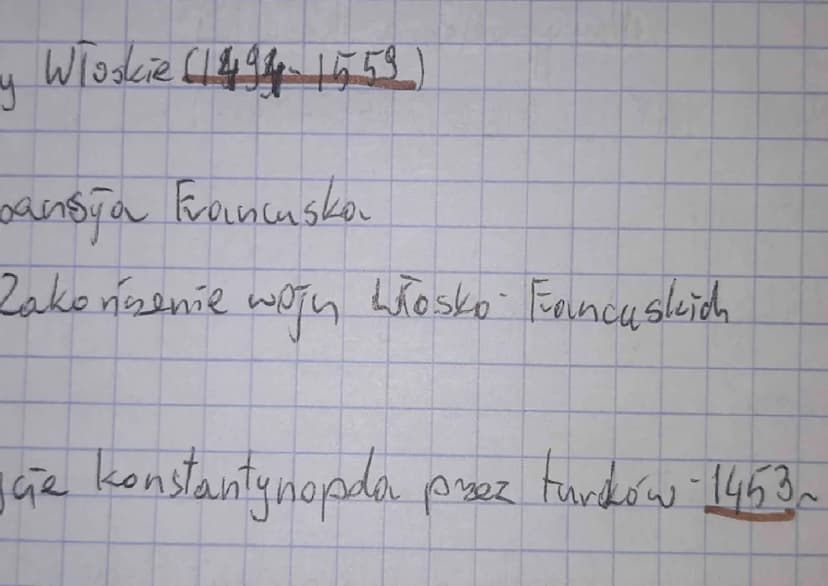 y Włoskie (1494-1559)
pansja Francuska
Zakończenie wojn Włosko-Francuskich
jcie konstantynopola przez turków - 1453r